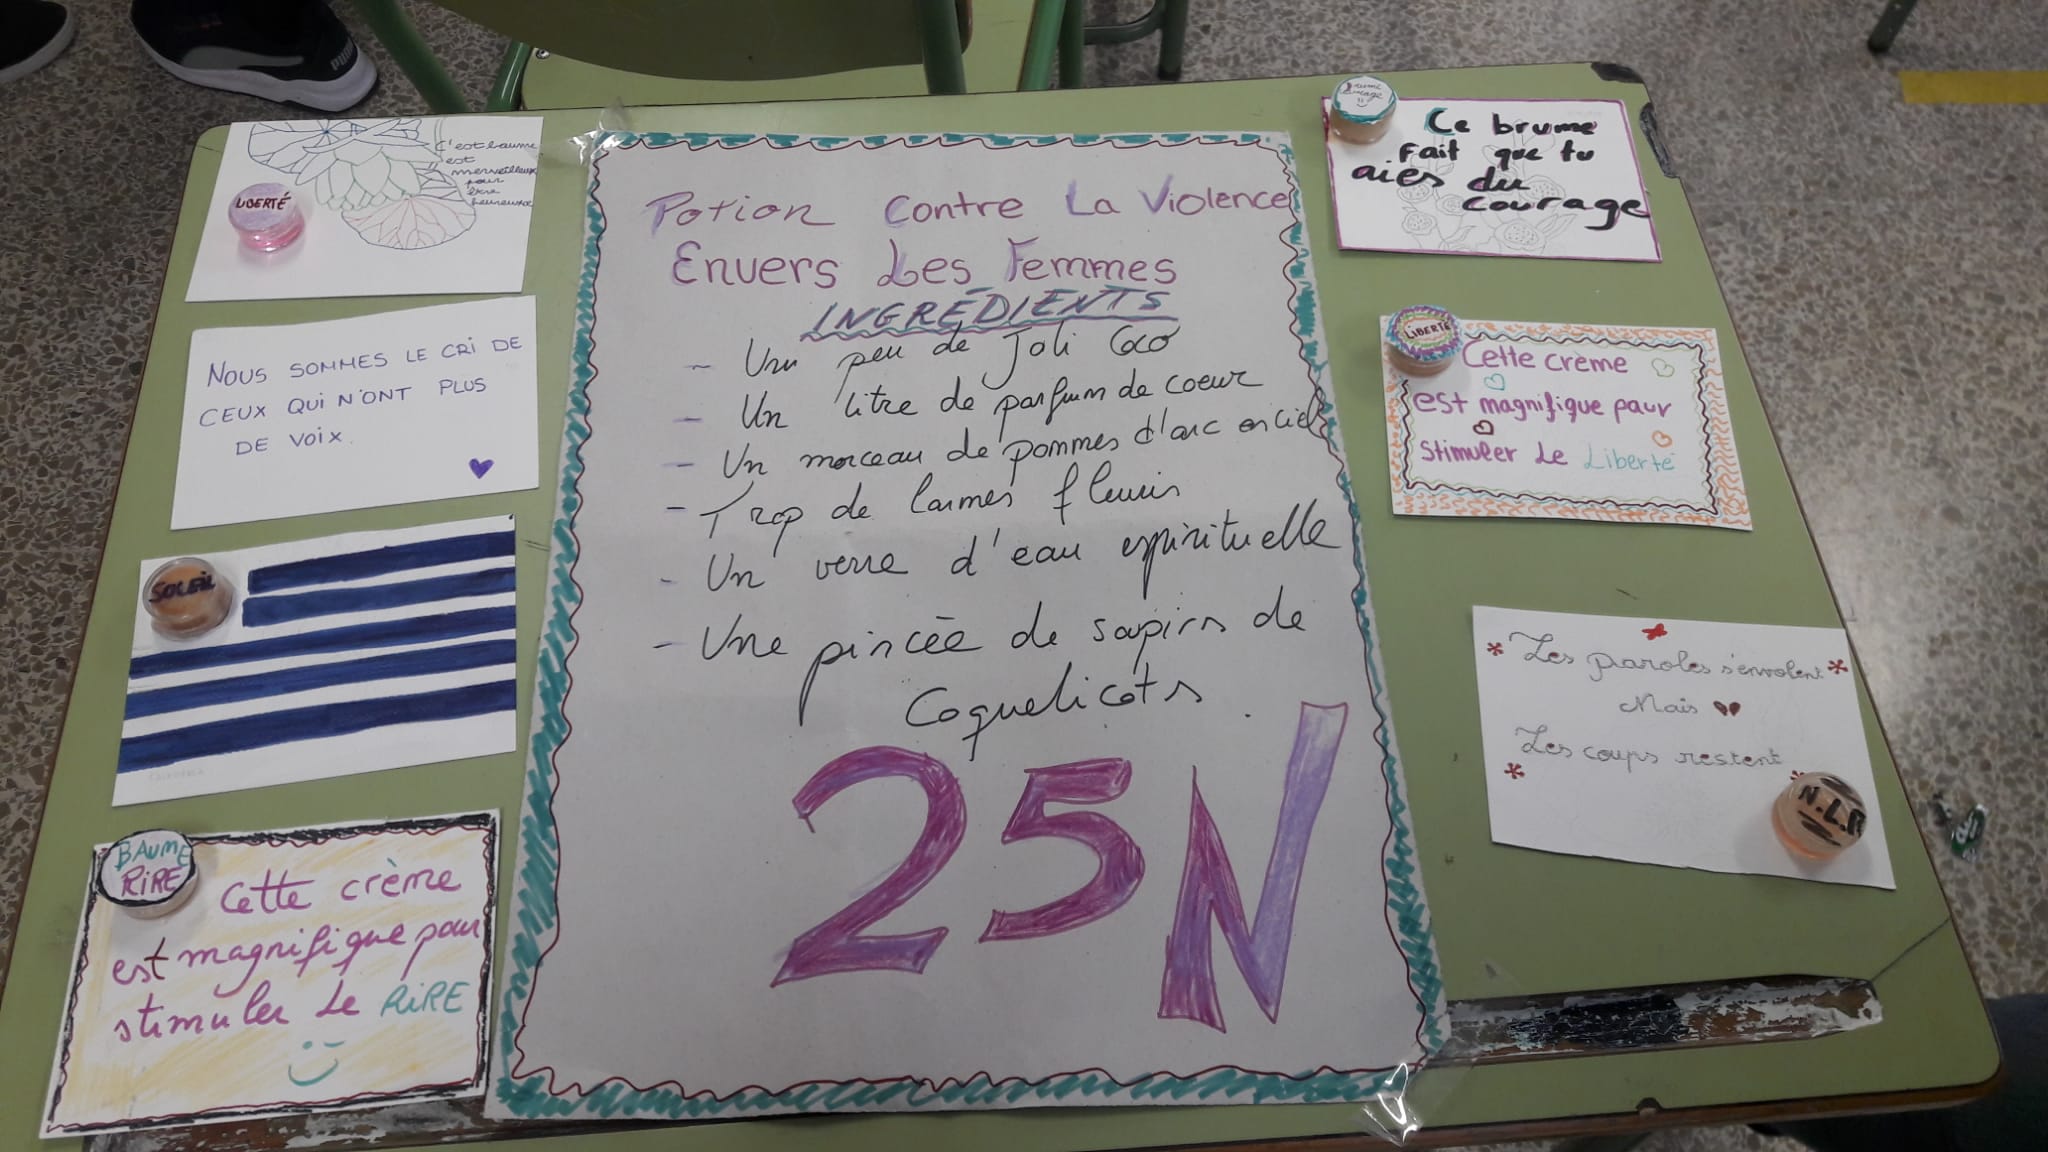 PUMA
C'est baume
est
merveilleux
pour
être
heureuse
LIBERTÉ
NOUS SOMMES LE CRI DE
CEUX QUI N'ONT PLUS
DE VOIX.
SOLEIL
BAUME
RIRE
Cette crème
est magnifique pour
stimuler Le RIRE
Potion Contre La Violence
Envers Les Femmes
INGRÉDIENTS
- Un peu de Joli Coco
- Un litre de parfum de coeur
- Un morceau de pommes d'arc en ciel
- Trop de larmes fleuris
- Un verre d'eau espirituelle
- Une pincée de sapins de
Coquelicots.
25N
Brume
Courage
Ce brume
Fait que tu
aies du
courage
LIBERTÉ
Cette crème
est magnifique pour
stimuler Le Liberté
Les paroles s'envolent
Mais
Les coups restent
N.L.R